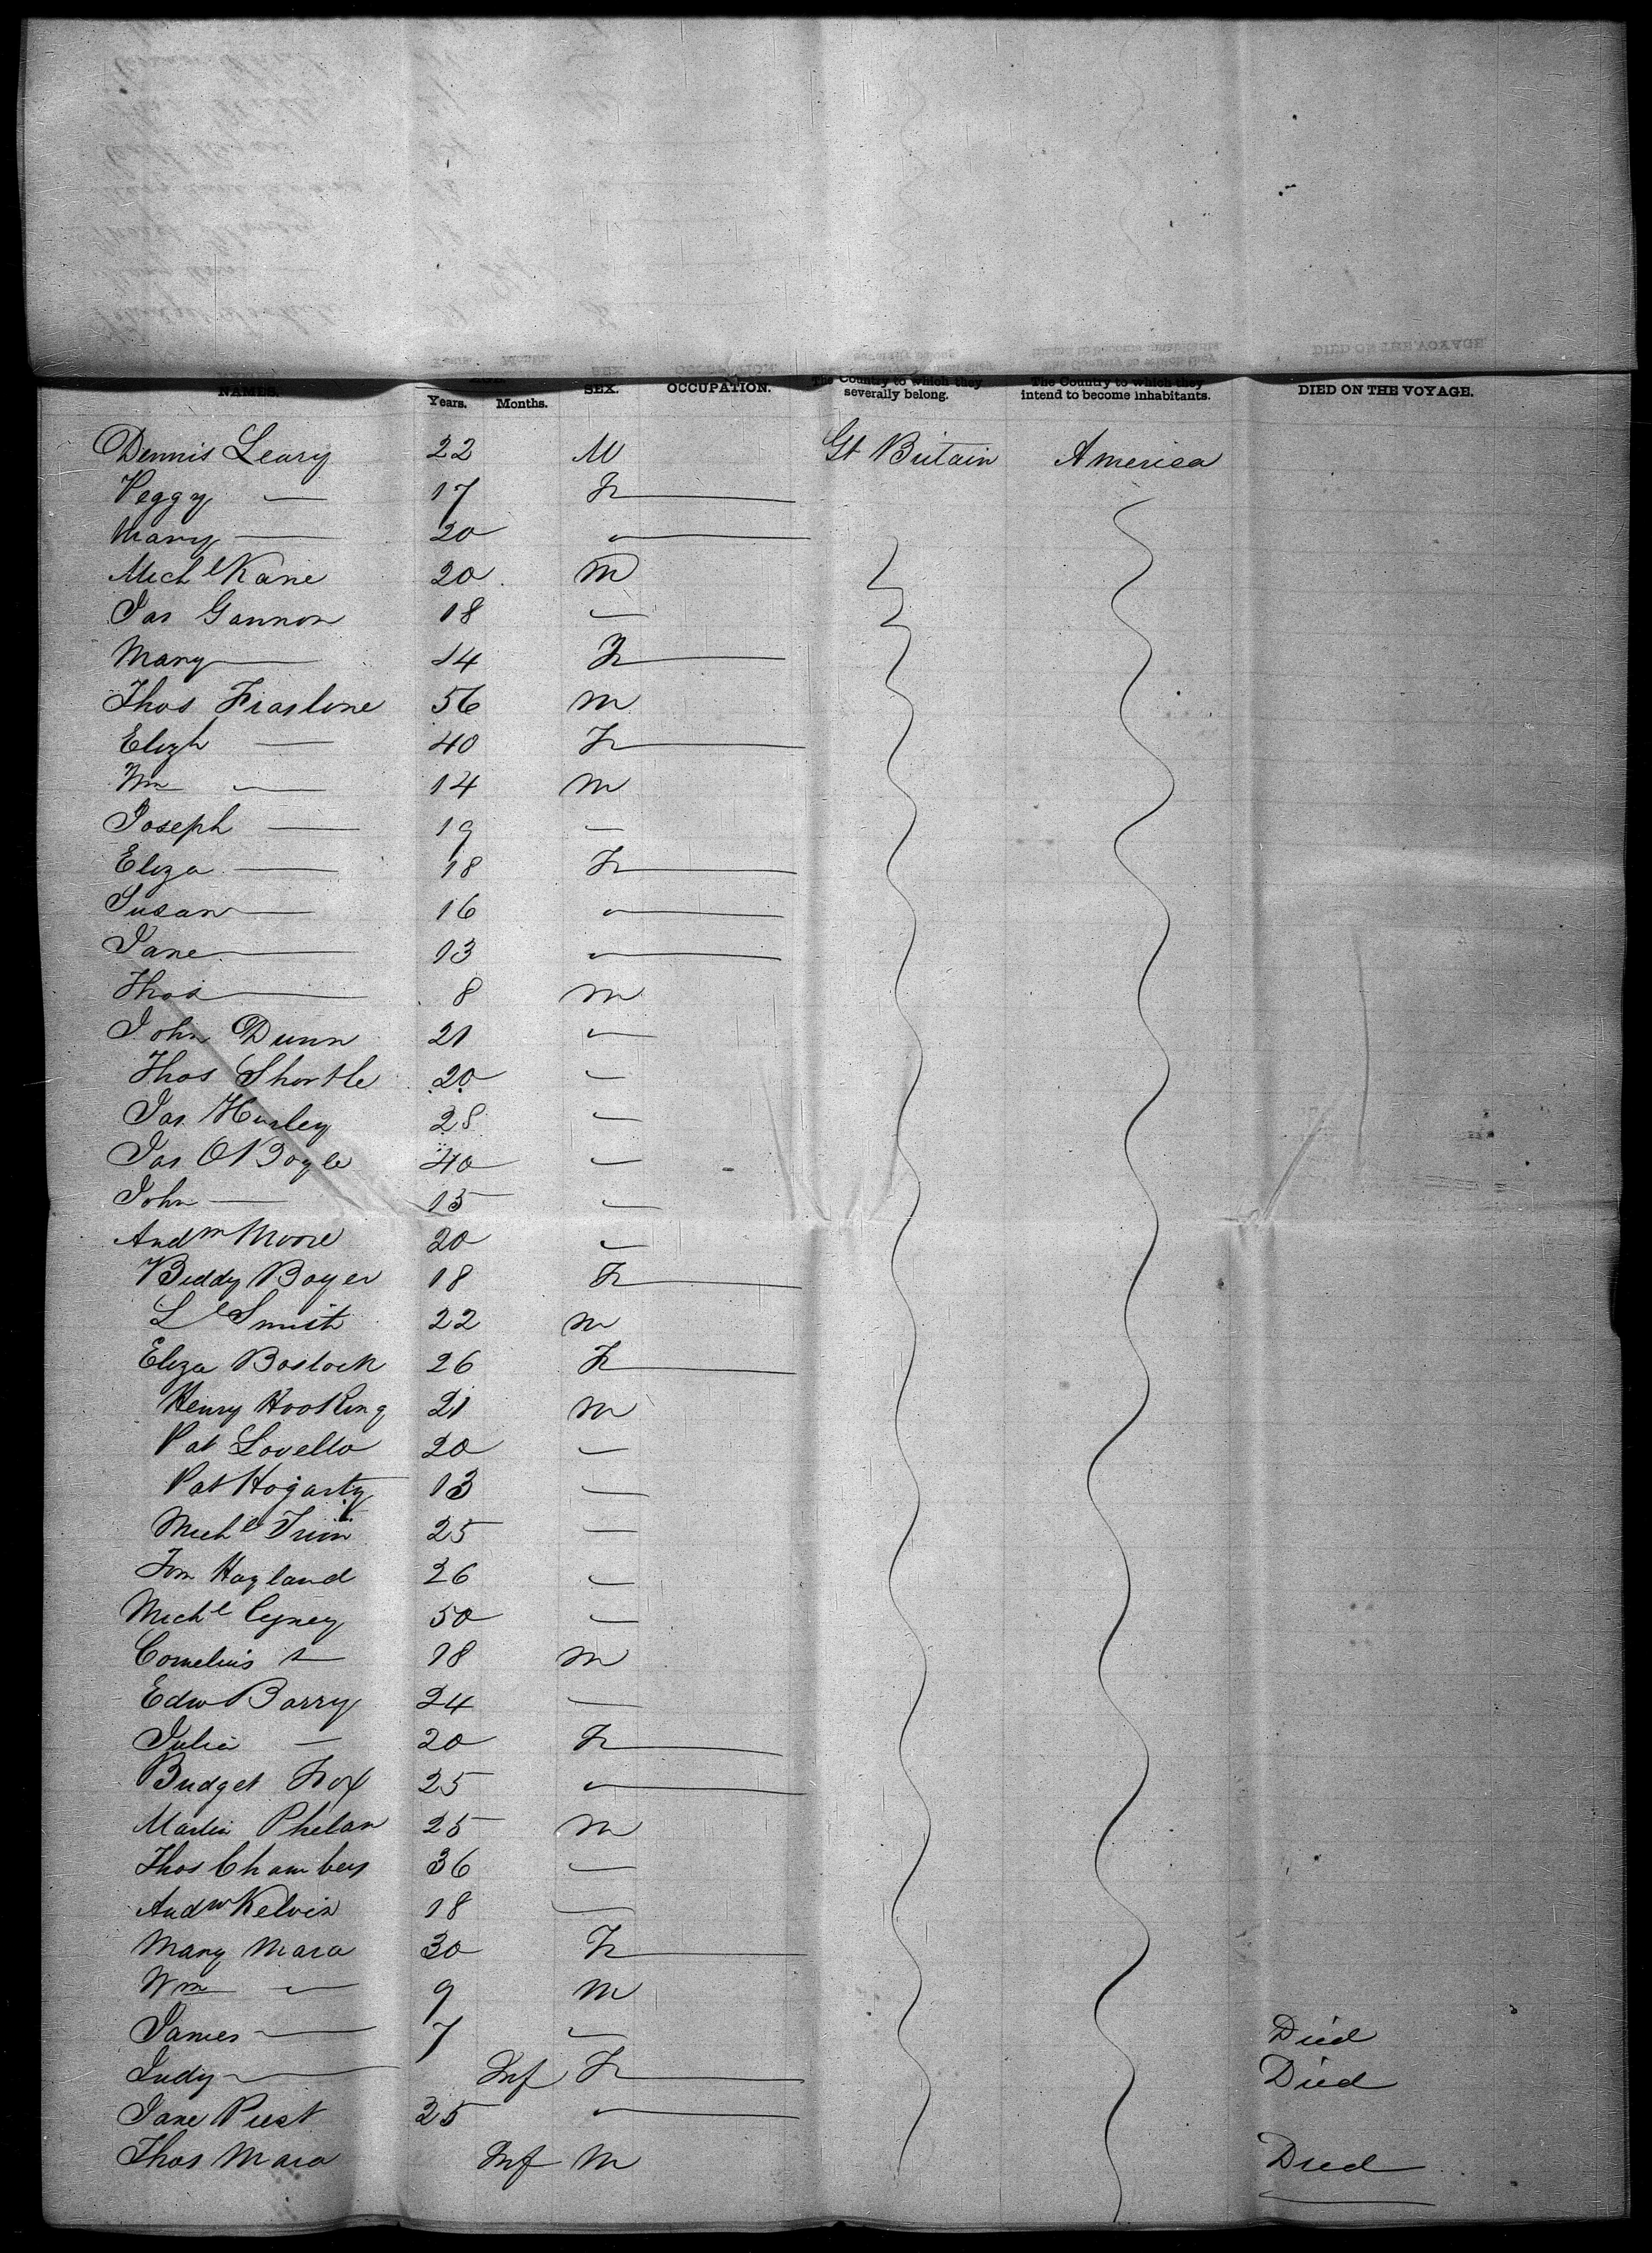 NAMES. Years. Months. SEX. OCCUPATION. The Country to which they severally belong. The Country to which they intend to become inhabitants. DIED ON THE VOYAGE.
Dennis Leary 22 M Gt Britain America
Peggy — 17 F
Mary — 20 "
Michl Kane 20 M
Jas Gannon 18 "
Mary — 14 F
Thos 56 M
Elizh — 40 F
Wm — 14 M
Joseph — 19 "
Eliza — 18 F
Susan — 16 "
Jane — 13 "
Thos — 8 M
John Dunn 21 "
Thos Shortle 20 "
Jas Hurley 28 "
Jas O'Boyle 40 "
John — 15 "
Andw Moore 20 "
Biddy Boyer 18 F
Smith 22 M
Eliza Bostock 26 F
Henry Hosking 21 M
Pat Lovello 20 "
Pat Hogarty 13 "
Michl 25 "
Hagland 26 "
Michl 50 "
Cornelius — 18 M
Edw Barry 24 "
Julia — 20 F
Bridget Fox 25 "
Martin Phelan 25 M
Thos Chambers 36 "
Andw Kelvin 18 "
Mary Mara 30 F
Wm — 9 M
James — 7 " Died
Judy — Inf F Died
Jane Priest 25 "
Thos Mara Inf M Died